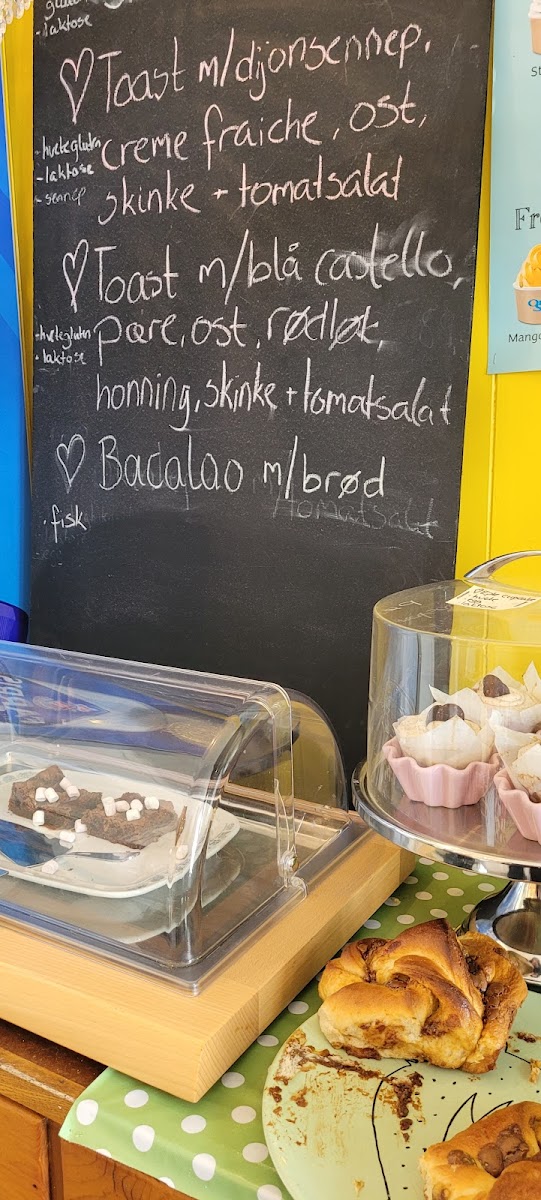 - laktose
♡ Toast m/dijonsennep,
creme fraiche, ost,
skinke + tomatsalat
- hvetegluten
- laktose
- sennep
♡ Toast m/blå castello,
pære, ost, rødløk,
honning, skinke + tomatsalat
- hvetegluten
- laktose
♡ Bacalao m/brød
tomatsalat
· fisk
St
Fr
Mango